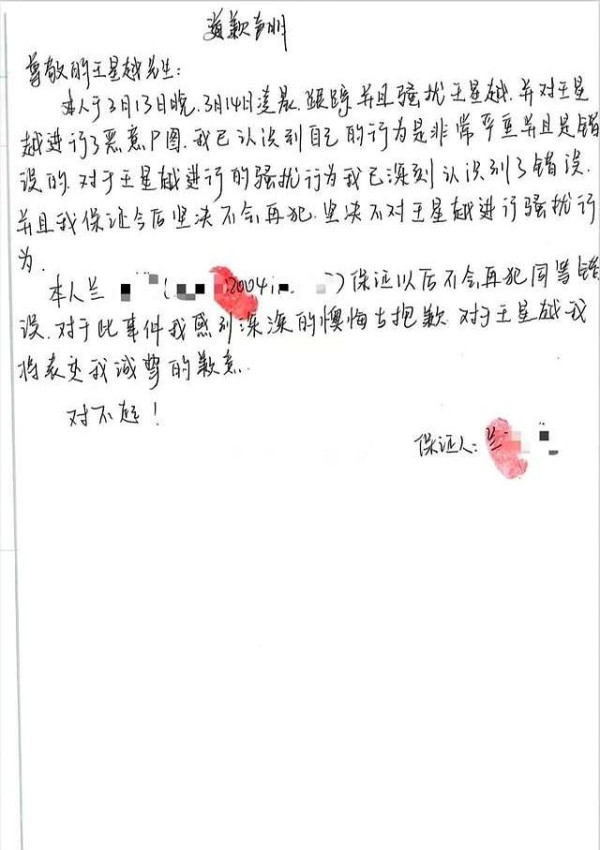 道歉声明
尊敬的王星越先生：
本人于2月13日晚，3月14日凌晨，跟踪并且骚扰王星越，并对王星
越进行了恶意P图，我已认识到自己的行为是非常严重并且是错
误的，对于王星越进行的骚扰行为我已深刻认识到了错误，
并且我保证今后坚决不会再犯，坚决不对王星越进行骚扰行
为。
本人兰 ( 2004 ) 保证以后不会再犯同等错
误，对于此事件我感到深深的懊悔与抱歉，对于王星越我
将表变我诚挚的歉意
对不起！
保证人：兰